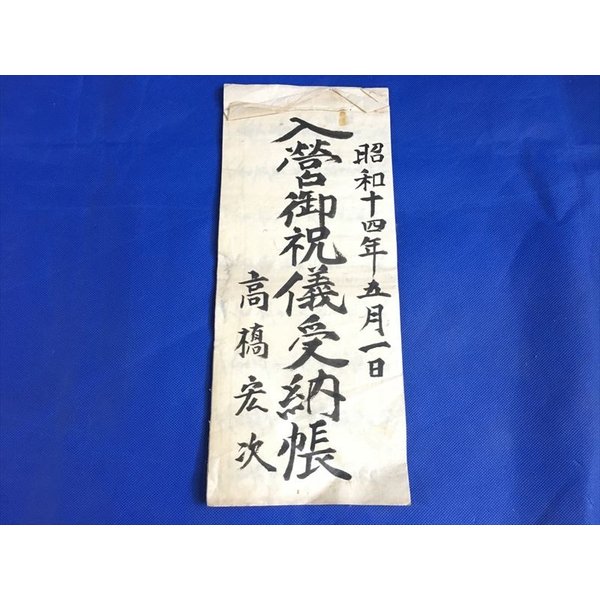 昭和十四年五月一日
入營御祝儀受納帳
高橋宏次